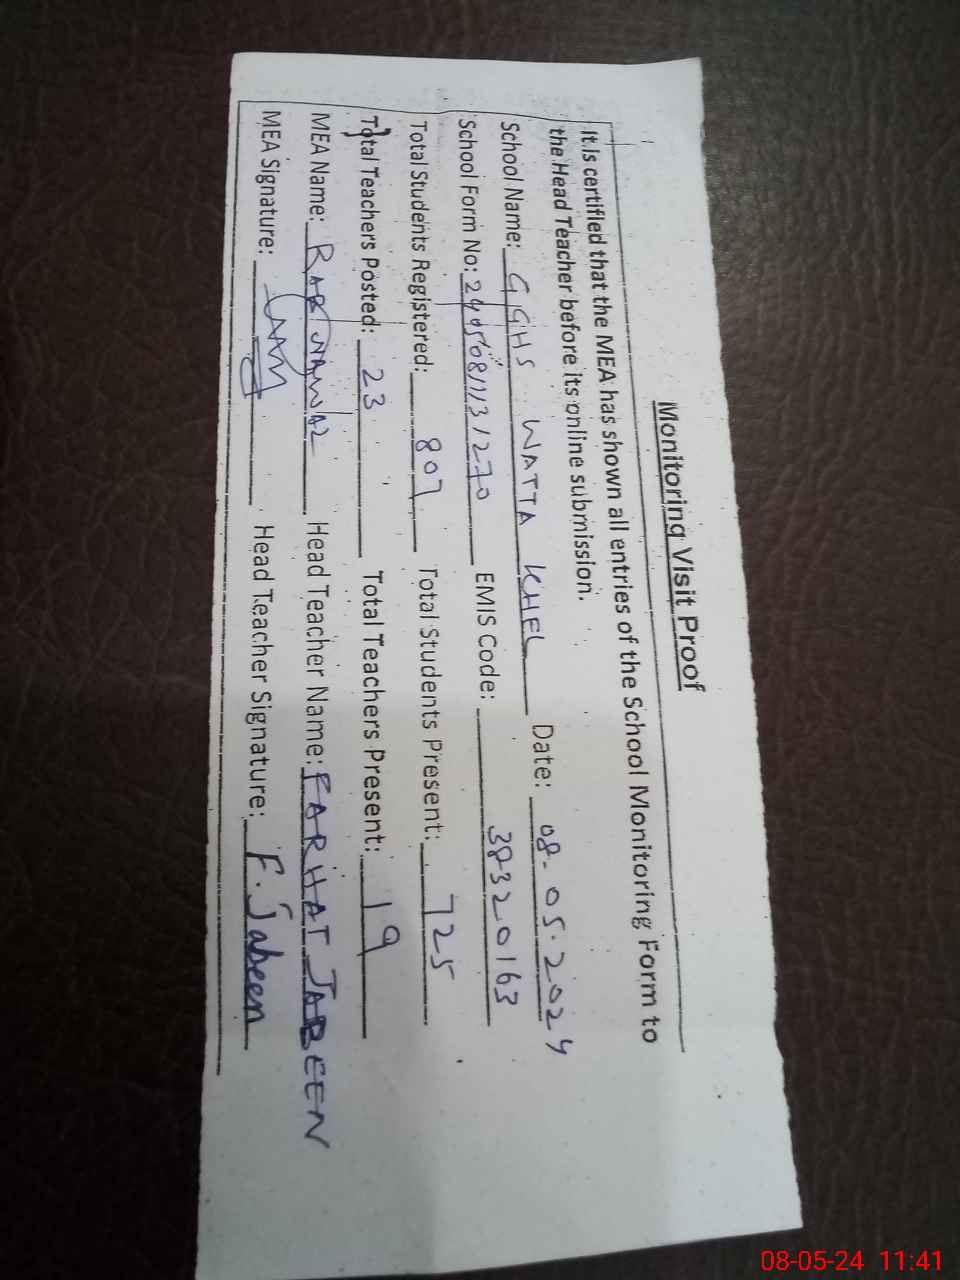 Monitoring Visit Proof
It is certified that the MEA has shown all entries of the School Monitoring Form to
the Head Teacher before its online submission.
School Name: GGHS WATTA KHEL Date: 08-05-2024
School Form No: EMIS Code: 38320163
Total Students Registered: 807 Total Students Present: 725
Total Teachers Posted: 23 Total Teachers Present: 19
MEA Name: RAB NAWAZ Head Teacher Name: FARHAT JABEEN
MEA Signature: Head Teacher Signature: F. Jabeen
08-05-24 11:41